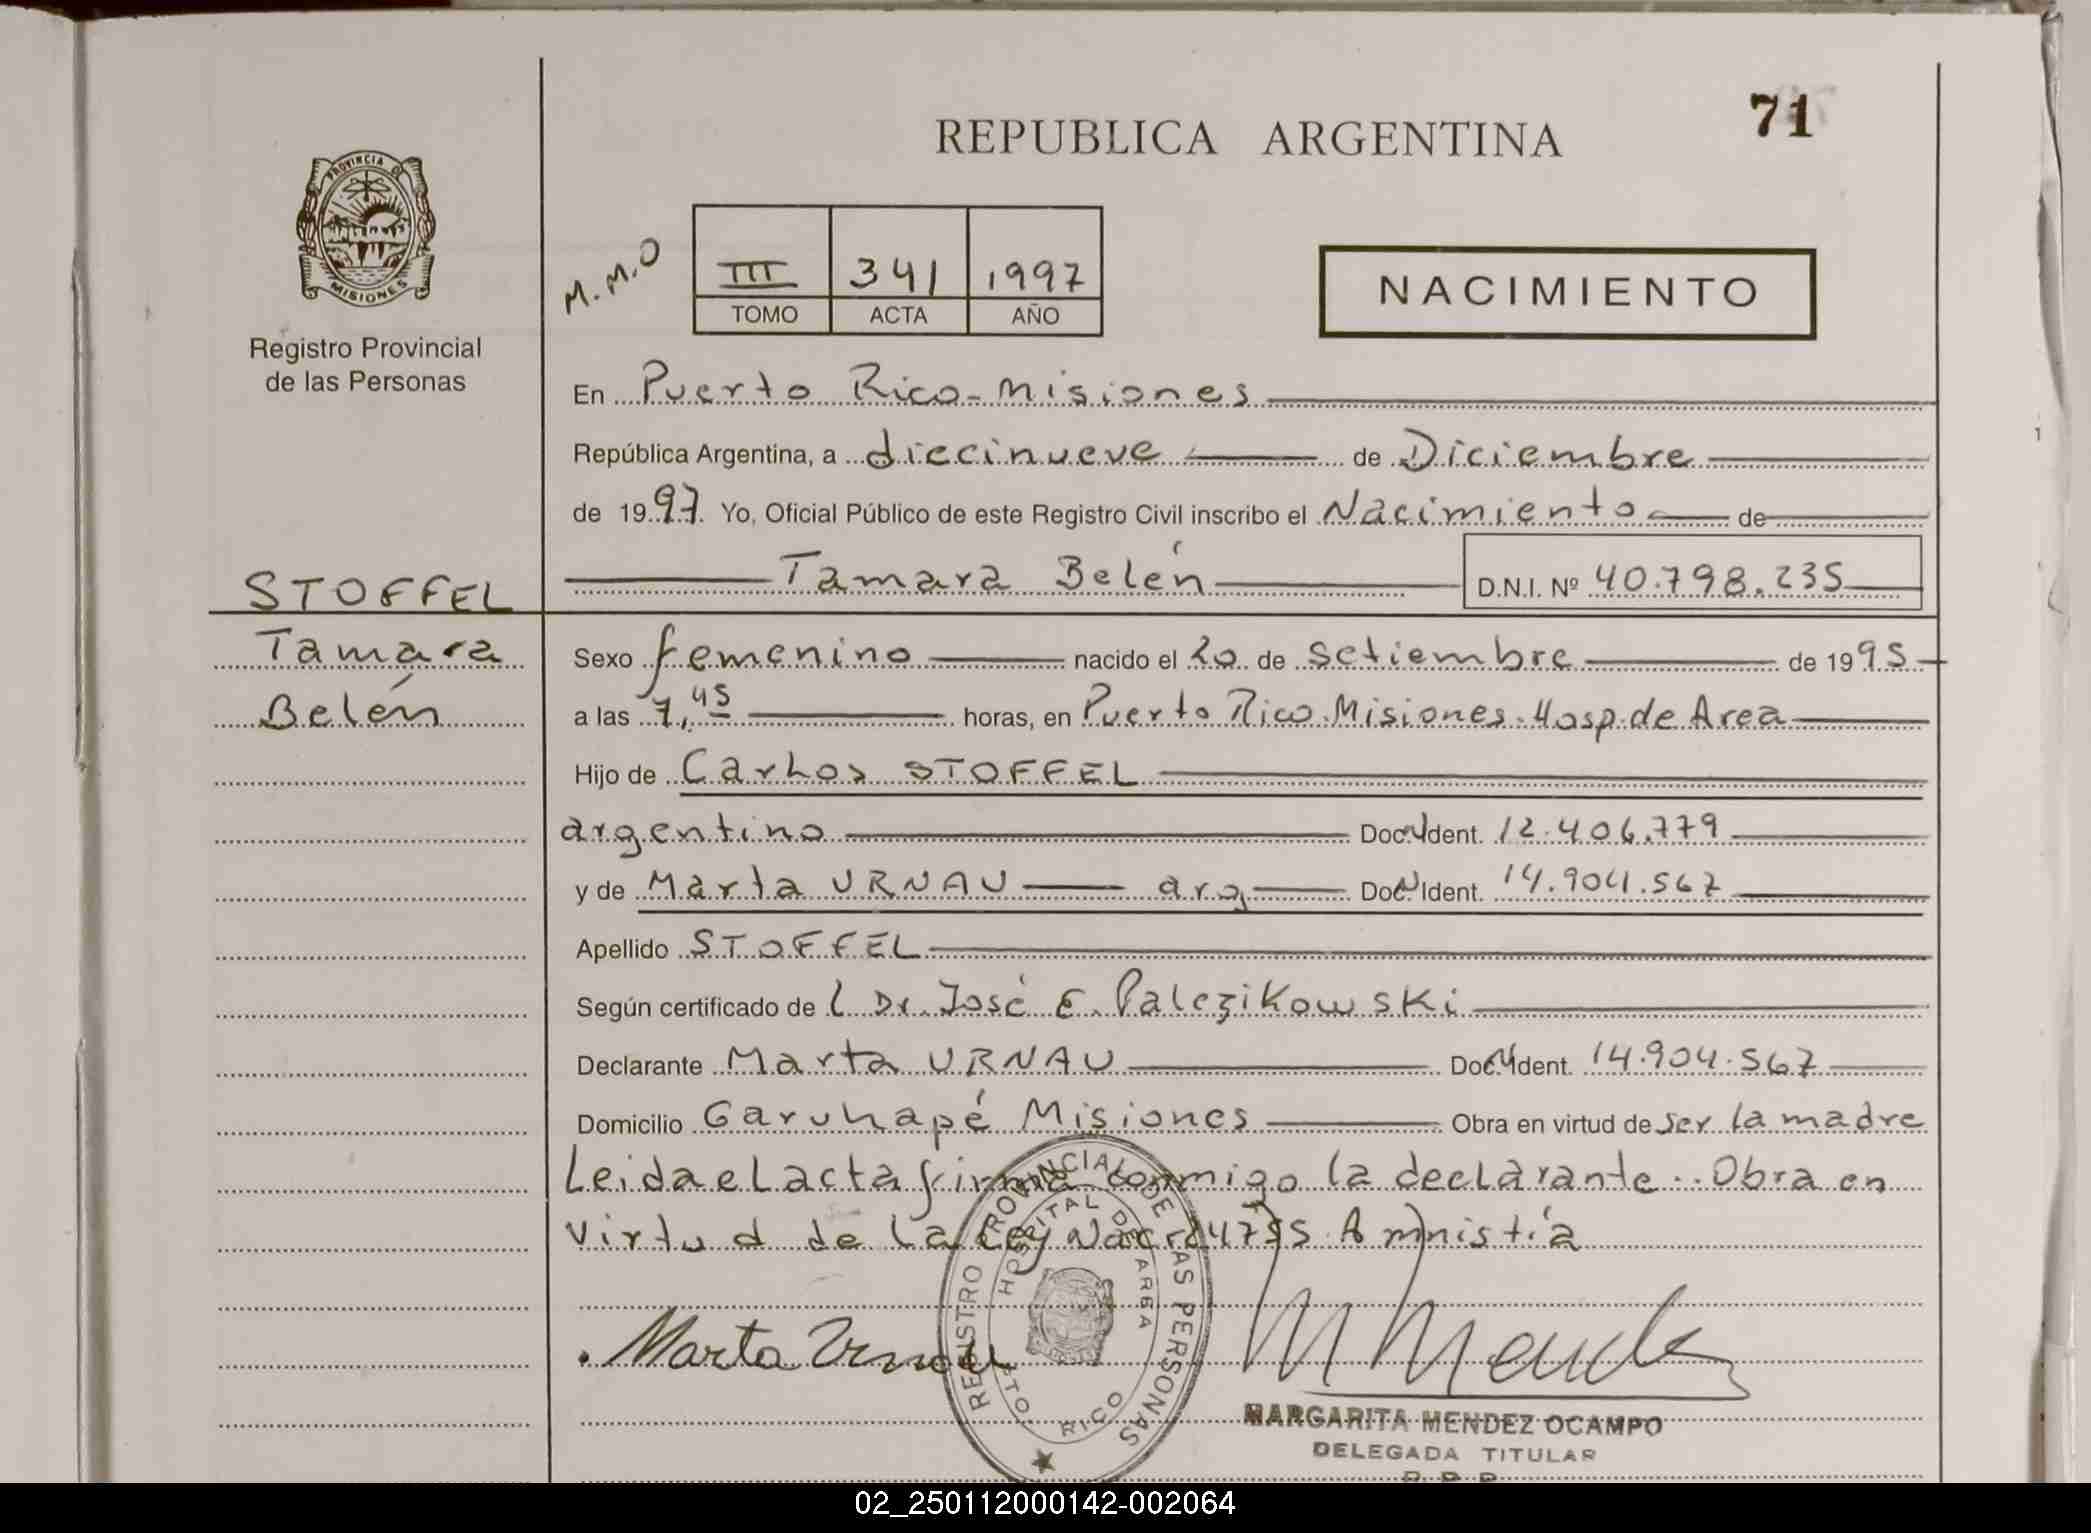 71
REPUBLICA ARGENTINA
PROVINCIA DE
MISIONES
Registro Provincial
de las Personas
M.M.O
III 341 1997
TOMO ACTA AÑO
NACIMIENTO
En Puerto Rico - Misiones
República Argentina, a diecinueve de Diciembre
de 1997. Yo, Oficial Público de este Registro Civil inscribo el Nacimiento de
Tamara Belén D.N.I. Nº 40.798.235
STOFFEL
Tamara
Belén
Sexo femenino nacido el 20 de Setiembre de 1995
a las 7,45 horas, en Puerto Rico Misiones. Hosp. de Area
Hijo de Carlos STOFFEL
argentino Doc. Ident. 12.406.779
y de Marta URNAU arg Doc. Ident. 14.904.567
Apellido STOFFEL
Según certificado de l Dr. José E. Palezikowski
Declarante Marta URNAU Doc. Ident. 14.904.567
Domicilio Garuhapé Misiones Obra en virtud de ser la madre
Leida el acta firma conmigo la declarante.. Obra en
virtud de la Ley Nac. 24755 Amnistía
REGISTRO PROVINCIAL DE LAS PERSONAS
HOSPITAL DE AREA
PTO. RICO
Marta Urnau
M Mendez
MARGARITA MENDEZ OCAMPO
DELEGADA TITULAR
R. P. P.
02_250112000142-002064